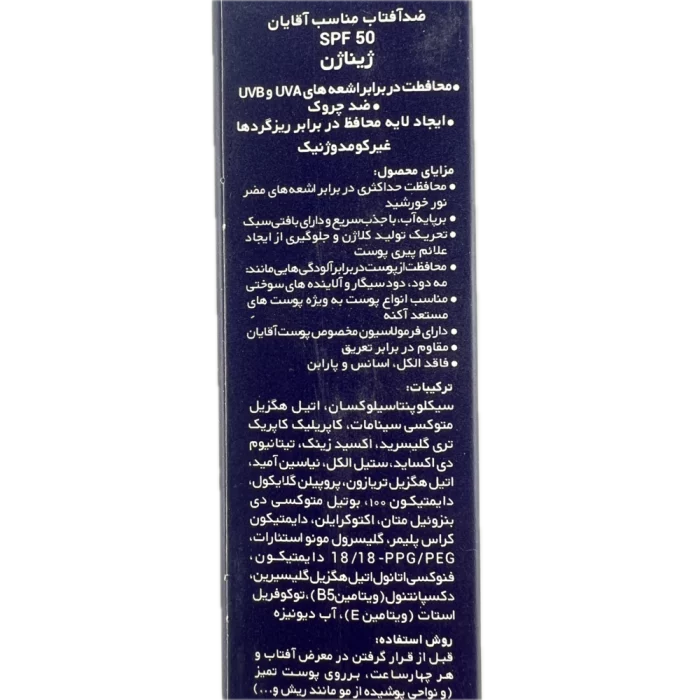 ضدآفتاب مناسب آقایان
SPF 50
ژیناژن
•محافظت در برابر اشعه های UVA و UVB
• ضد چروک
• ایجاد لایه محافظ در برابر ریزگردها
غیرکومدوژنیک
مزایای محصول:
• محافظت حداکثری در برابر اشعه های مضر
نور خورشید
• برپایه آب، با جذب سریع و دارای بافتی سبک
• تحریک تولید کلاژن و جلوگیری از ایجاد
علائم پیری پوست
• محافظت از پوست در برابر آلودگی هایی مانند:
مه دود، دود سیگار و آلاینده های سوختی
• مناسب انواع پوست به ویژه پوست های
مستعد آکنه
• دارای فرمولاسیون مخصوص پوست آقایان
• مقاوم در برابر تعریق
• فاقد الکل، اسانس و پارابن
ترکیبات:
سیکلوپنتاسیلوکسان، اتیل هگزیل
متوکسی سینامات، کاپریلیک کاپریک
تری گلیسرید، اکسید زینک، تیتانیوم
دی اکساید، ستیل الکل، نیاسین آمید،
اتیل هگزیل تریازون، پروپیلن گلایکول،
دایمتیکون ۱۰۰، بوتیل متوکسی دی
بنزوئیل متان، اکتوکرایلن، دایمتیکون
کراس پلیمر، گلیسرول مونو استئارات،
PPG/PEG-18/18 دایمتیکون،
فنوکسی اتانول اتیل هگزیل گلیسیرین،
دکسپانتنول (ویتامین B5)، توکوفریل
استات (ویتامین E)، آب دیونیزه
روش استفاده:
قبل از قرار گرفتن در معرض آفتاب و
هر چهار ساعت، بر روی پوست تمیز
(و نواحی پوشیده از مو مانند ریش و...)